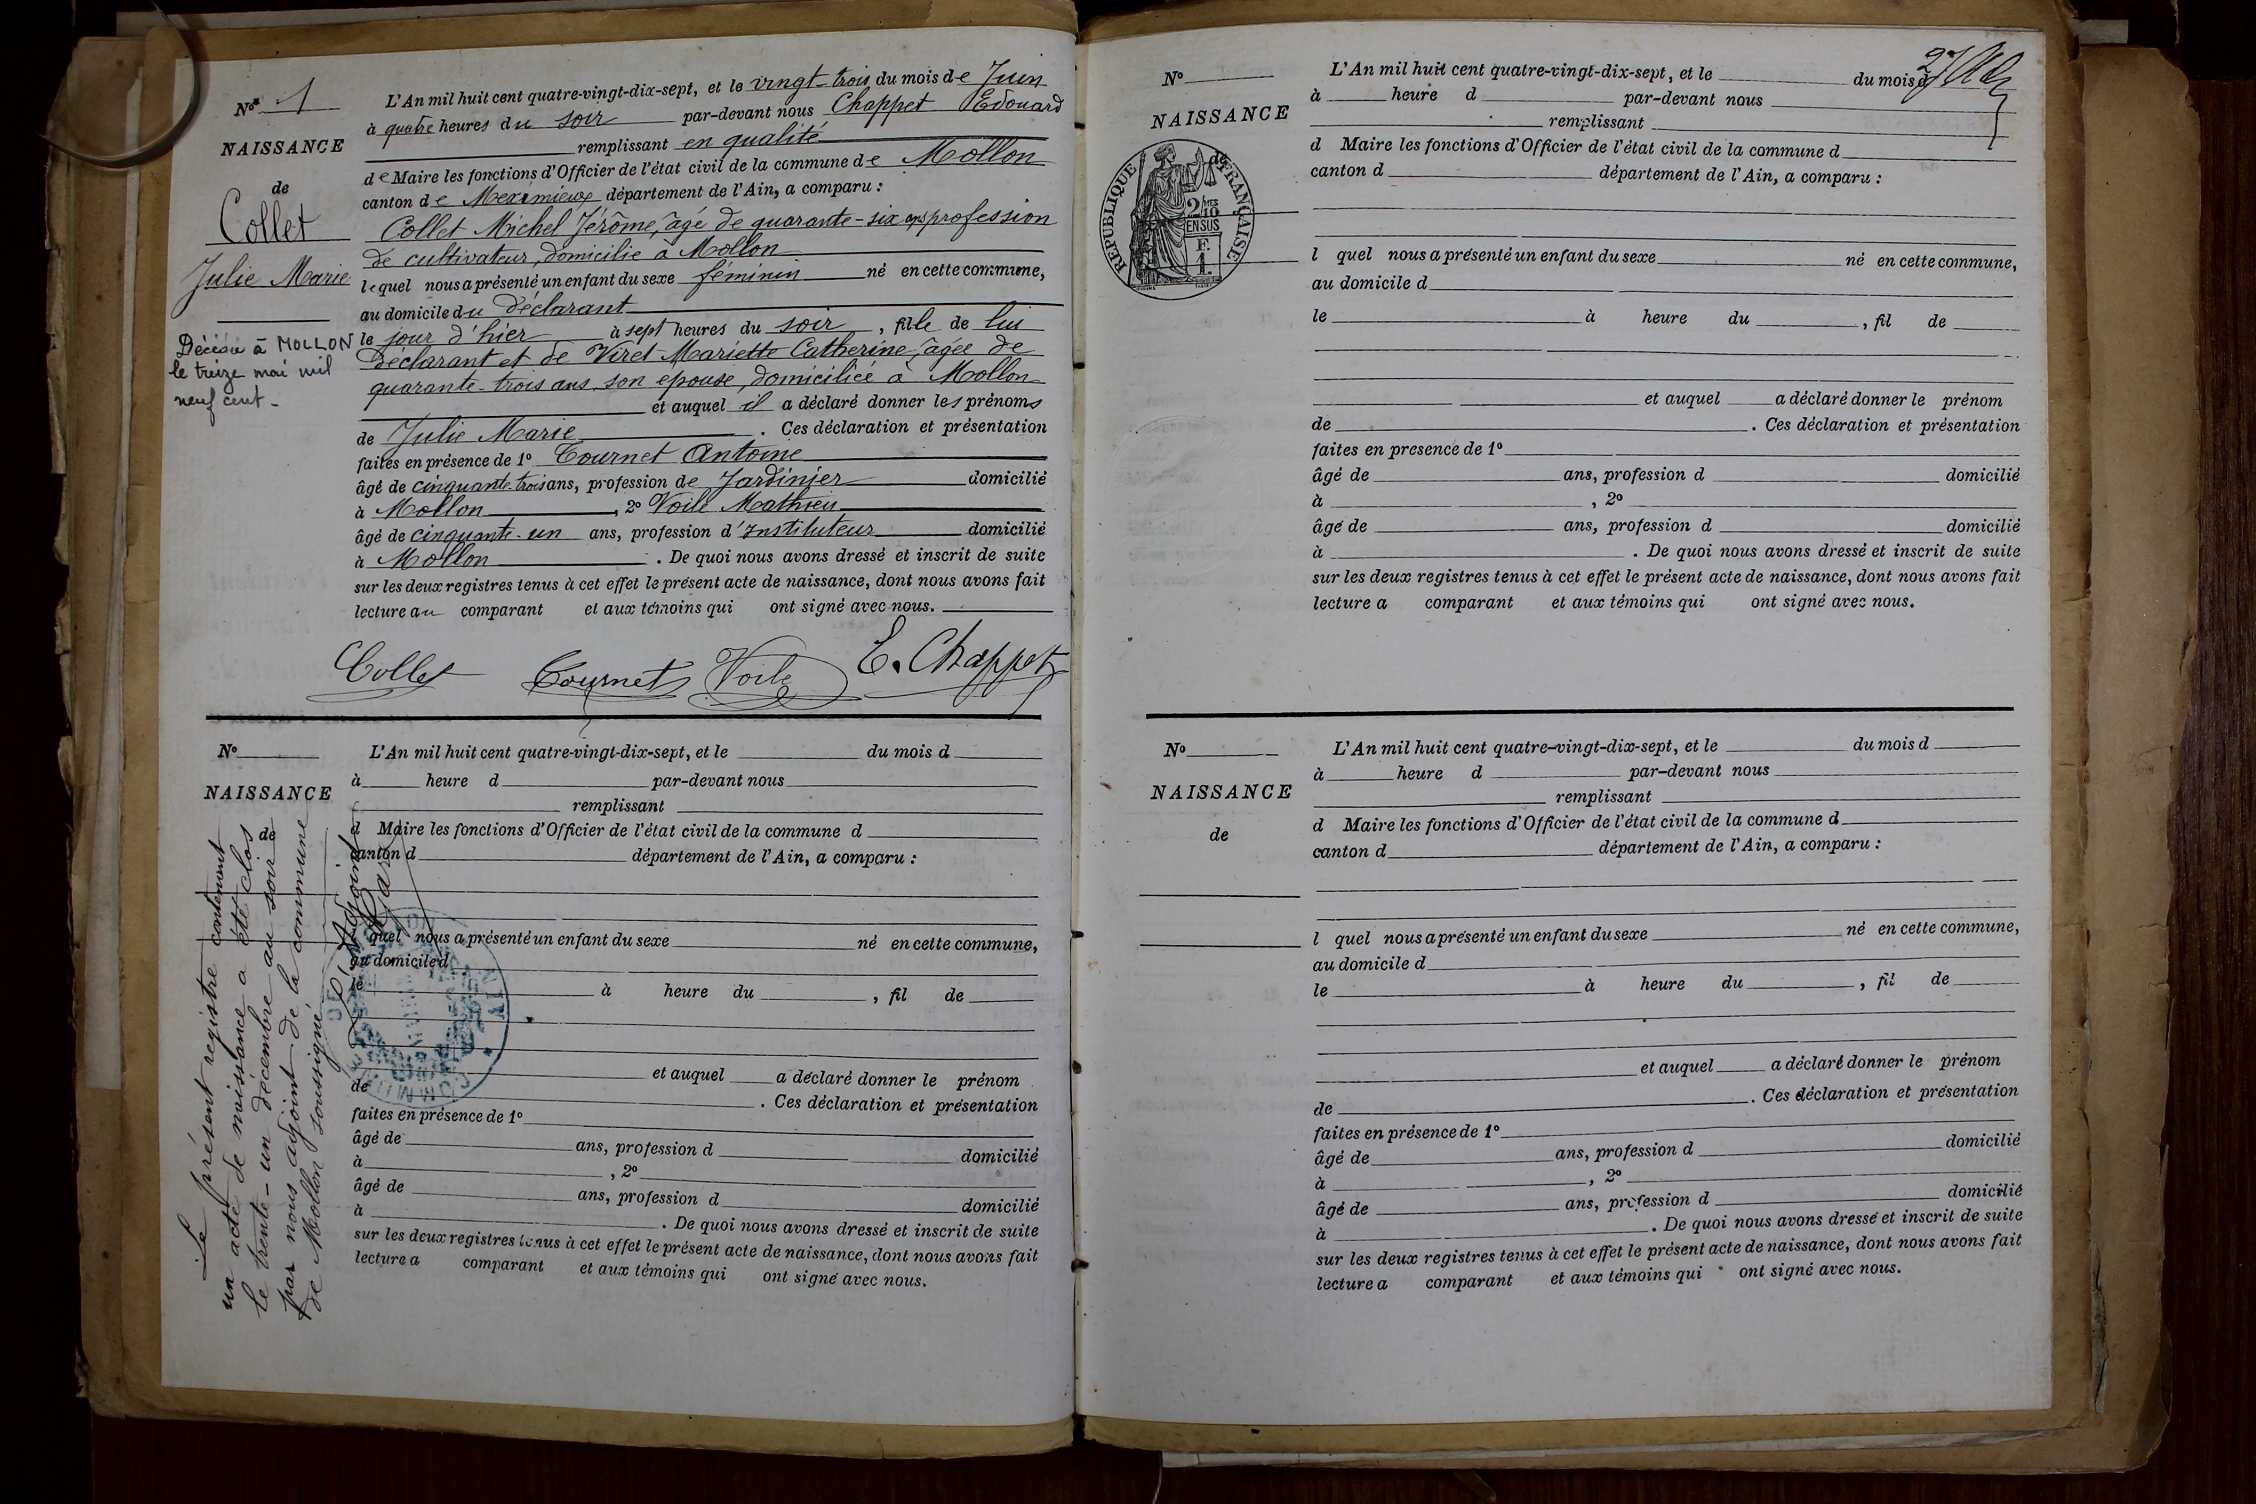 Nº 1
NAISSANCE
de
Collet
Julie Marie
Décédée à MOLLON
le treize mai mil
neuf cent -
L'An mil huit cent quatre-vingt-dix-sept, et le vingt-trois du mois de Juin
à quatre heures du soir par-devant nous Chappet Edouard
remplissant en qualité
de Maire les fonctions d'Officier de l'état civil de la commune de Mollon
canton de Meximieux département de l'Ain, a comparu :
Collet Michel Jérôme, âgé de quarante-six ans profession
de cultivateur, domicilié à Mollon
lequel nous a présenté un enfant du sexe féminin né en cette commune,
au domicile du Déclarant
le jour d'hier à sept heures du soir, fille de lui
déclarant et de Viret Mariette Catherine, âgée de
quarante-trois ans, son epouse, domiciliée à Mollon
et auquel il a déclaré donner les prénoms
de Julie Marie. Ces déclaration et présentation
faites en présence de 1º Cournet Antoine
âgé de cinquante trois ans, profession de Jardinier domicilié
à Mollon, 2º Voile Mathieu
âgé de cinquante-un ans, profession d'Instituteur domicilié
à Mollon. De quoi nous avons dressé et inscrit de suite
sur les deux registres tenus à cet effet le présent acte de naissance, dont nous avons fait
lecture au comparant et aux témoins qui ont signé avec nous.
Collet Cournet Voile E. Chappet
Nº
NAISSANCE
de
L'An mil huit cent quatre-vingt-dix-sept, et le du mois d
à heure d par-devant nous
remplissant
d Maire les fonctions d'Officier de l'état civil de la commune d
canton d département de l'Ain, a comparu :
l quel nous a présenté un enfant du sexe né en cette commune,
au domicile d
le à heure du , fil de
et auquel a déclaré donner le prénom
de . Ces déclaration et présentation
faites en présence de 1º
âgé de ans, profession d domicilié
à , 2º
âgé de ans, profession d domicilié
à . De quoi nous avons dressé et inscrit de suite
sur les deux registres tenus à cet effet le présent acte de naissance, dont nous avons fait
lecture a comparant et aux témoins qui ont signé avec nous.
Le présent registre contenant
un acte de naissance a été clos
le trente-un décembre au soir
par nous adjoint de la commune
de Mollon soussigné
L'Adjoint
Nº
NAISSANCE
de
RÉPUBLIQUE FRANÇAISE
2/10
EN SUS
F.
1.
L'An mil huit cent quatre-vingt-dix-sept, et le du mois d
à heure d par-devant nous
remplissant
d Maire les fonctions d'Officier de l'état civil de la commune d
canton d département de l'Ain, a comparu :
l quel nous a présenté un enfant du sexe né en cette commune,
au domicile d
le à heure du , fil de
et auquel a déclaré donner le prénom
de . Ces déclaration et présentation
faites en presence de 1º
âgé de ans, profession d domicilié
à , 2º
âgé de ans, profession d domicilié
à . De quoi nous avons dressé et inscrit de suite
sur les deux registres tenus à cet effet le présent acte de naissance, dont nous avons fait
lecture a comparant et aux témoins qui ont signé avec nous.
Nº
NAISSANCE
de
L'An mil huit cent quatre-vingt-dix-sept, et le du mois d
à heure d par-devant nous
remplissant
d Maire les fonctions d'Officier de l'état civil de la commune d
canton d département de l'Ain, a comparu :
l quel nous a présenté un enfant du sexe né en cette commune,
au domicile d
le à heure du , fil de
et auquel a déclaré donner le prénom
de . Ces déclaration et présentation
faites en présence de 1º
âgé de ans, profession d domicilié
à , 2º
âgé de ans, profession d domicilié
à . De quoi nous avons dressé et inscrit de suite
sur les deux registres tenus à cet effet le présent acte de naissance, dont nous avons fait
lecture a comparant et aux témoins qui ont signé avec nous.